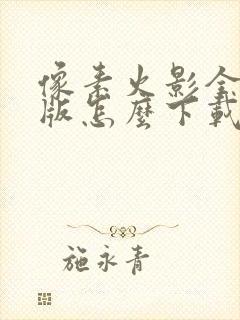 像素火影全
版怎麼下載
施永青